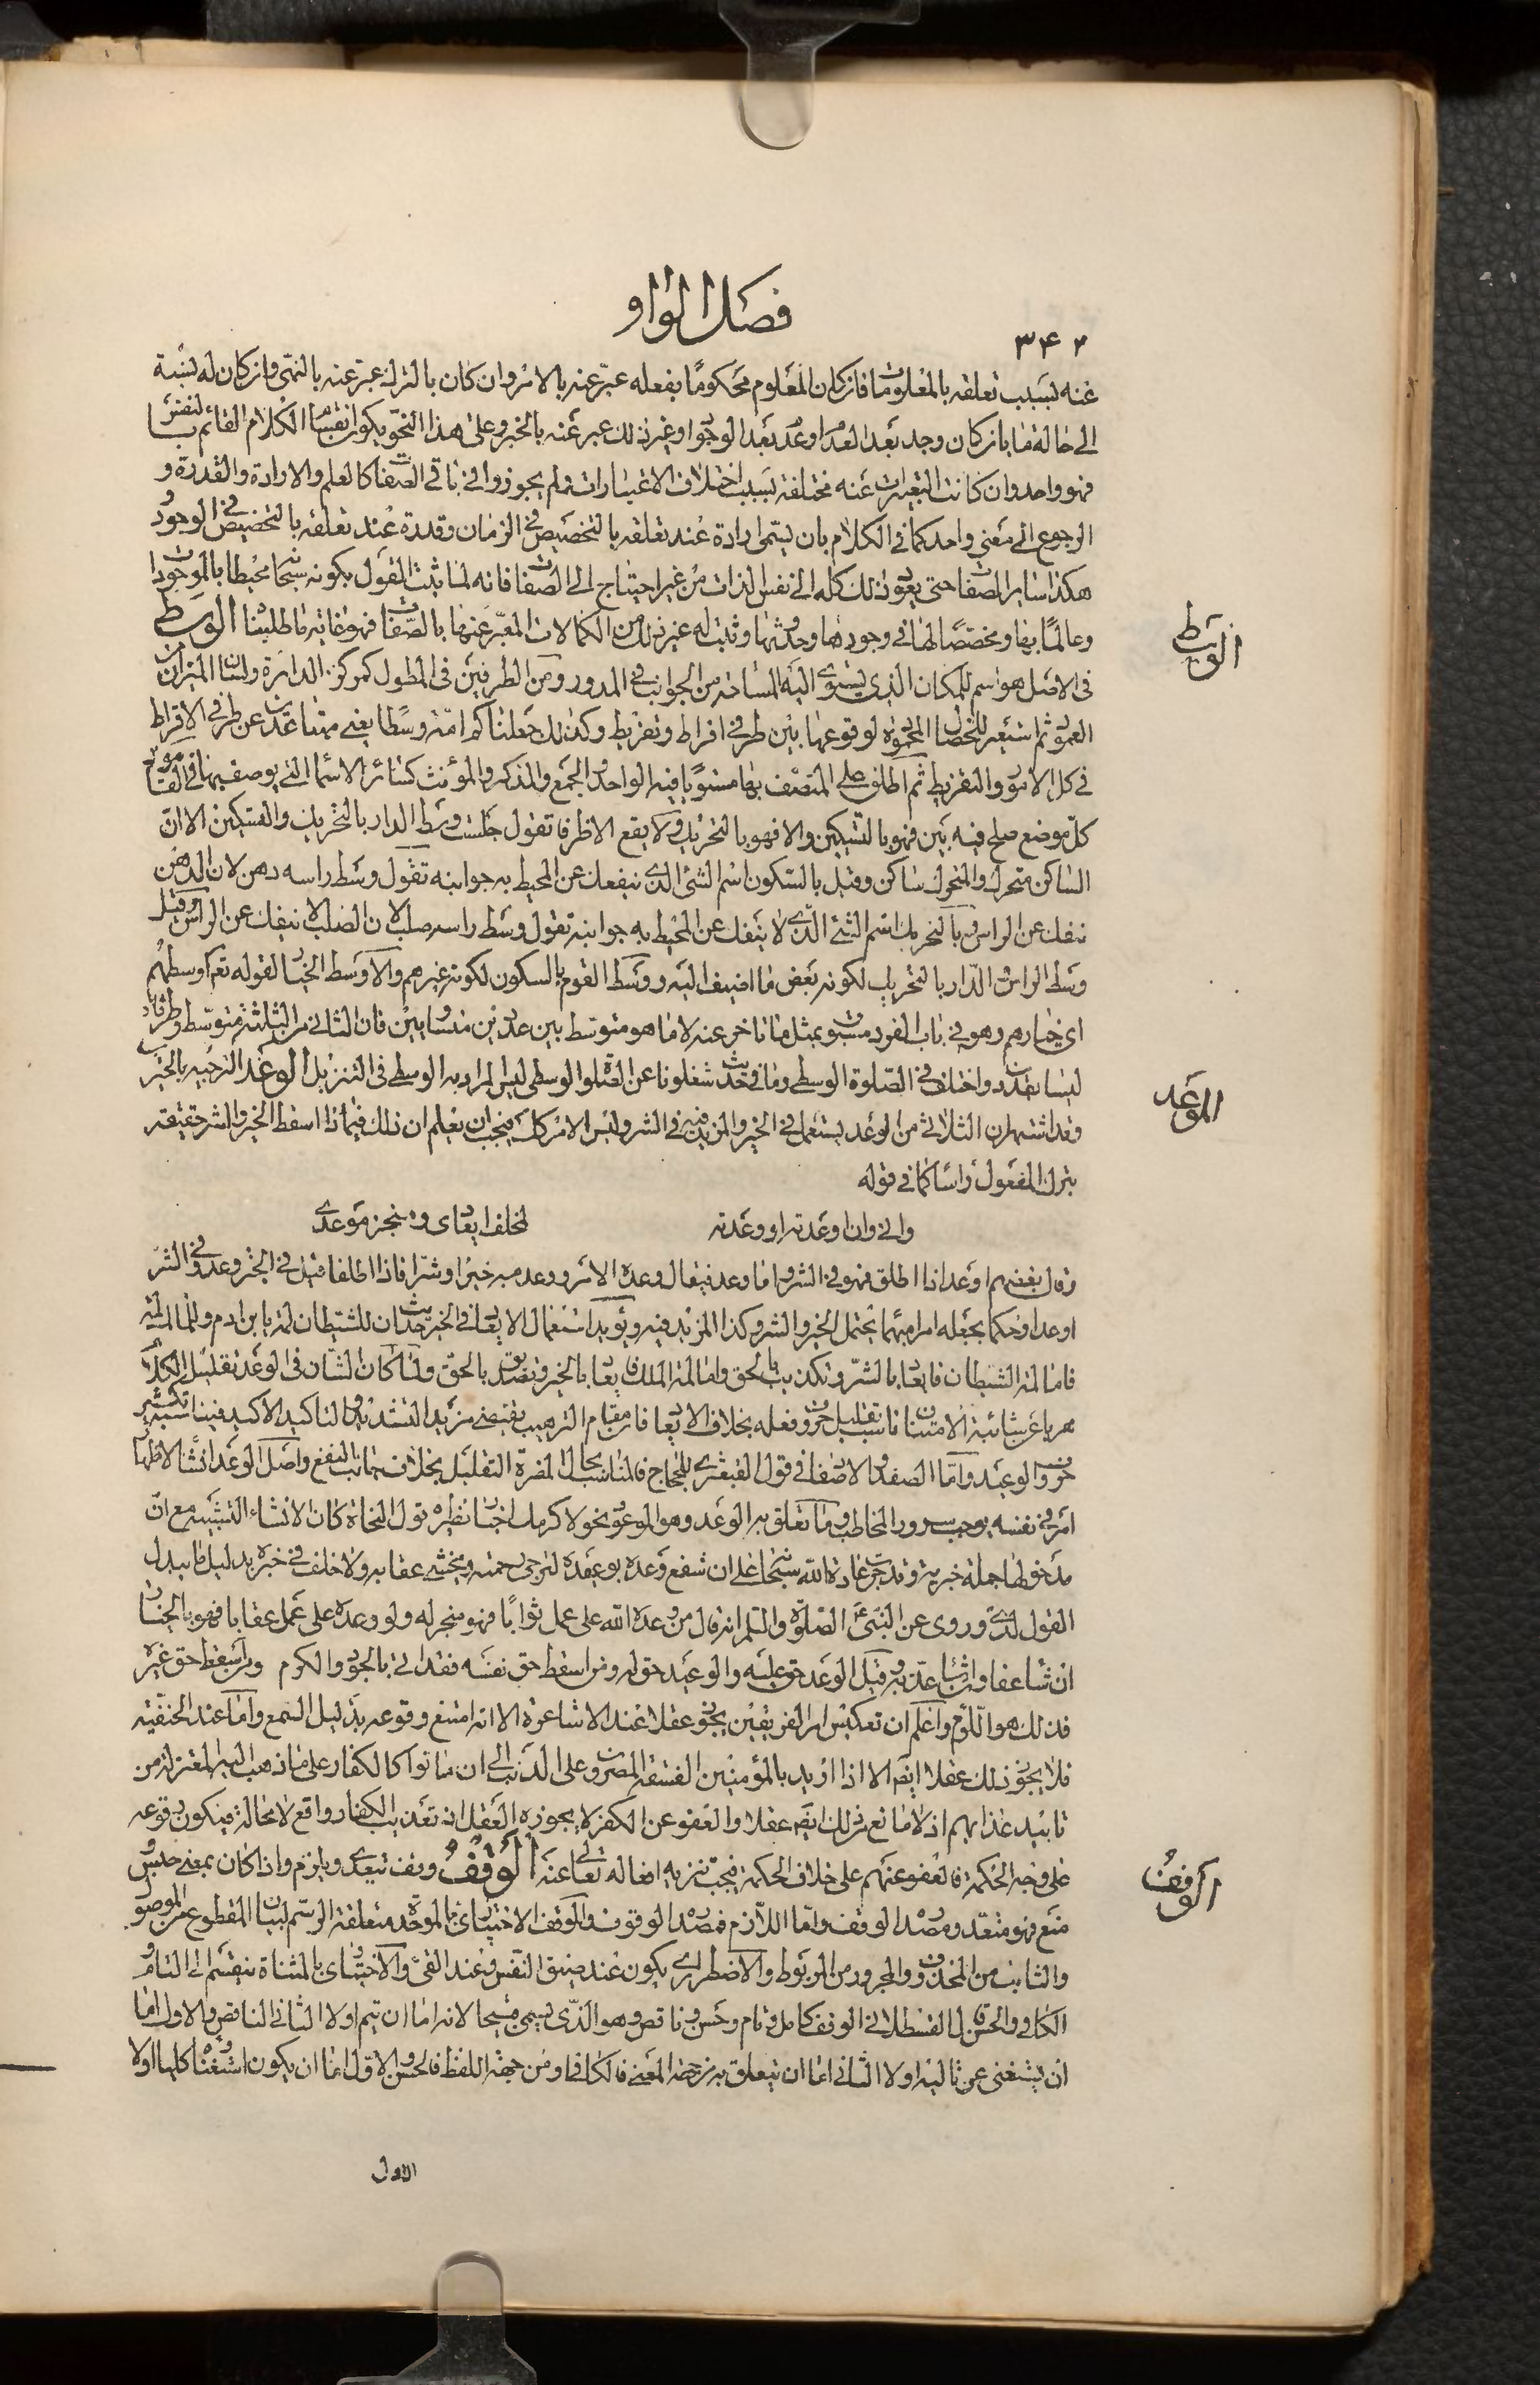 فصل الواو
٣٤٢
عنه بسبب تعلقه بالمعلومات فان كان المعلوم محكوما بفعله عبر عنه بالامر وان كان بالترك عبر عنه بالنهى وان كان له نسبة
الى حالة ما بان كان وجد بعد العدم او عدم بعد الوجود او غير ذلك عبر عنه بالخبر وعلى هذا النحو يكون انقسام الكلام القائم بالنفس
فهو واحد وان كانت التعبيرات عنه مختلفة بسبب اختلاف الاعتبارات ثم لم يجوزوا فى باقى الصفات كالعلم والارادة والقدرة و
الرجوع الى معنى واحد كما فى الكلام بان يسمى ارادة عند تعلقه بالتخصيص فى الزمان وقدرة عند تعلقه بالتخصيص فى الوجود
هكذا سائر الصفات حتى يعود ذلك كله الى نفس الذات من غير احتياج الى الصفات فانه لما ثبت القول بكونه سبحانه محيطا بالموجودات
وعالما بها ومخصصا لها فى وجودها وحدوثها وثبت له غير ذلك من الكمالات المعبر عنها بالصفات فهو غاية ما طلبنا الوسط
الوسط
فى الاصل هو اسم للمكان الذى يستوى اليه المساحة من الجوانب فى المدور ومن الطرفين فى المطول كمركز الدائرة ولسان الميزان من
العمود ثم استعير للخصال المحمودة لوقوعها بين طرفى افراط وتفريط وكذلك جعلناكم امة وسطا يعنى متباعدين عن طرفى الافراط
فى كل الامور والتفريط ثم اطلق على المتصف بها مستويا فيه الواحد والجمع والمذكر والمؤنث كسائر الاسماء التى يوصف بها فى القاموس
كل موضع صلح فيه بين فهو بالتسكين والا فهو بالتحريك ولا يقع الا ظرفا تقول جلست وسط الدار بالتحريك والتسكين الا ان
الساكن متحرك والمتحرك ساكن وقيل بالسكون اسم الشئ الذى ينفك عن المحيط به جوانبه تقول وسط راسه دهن لان الدهن
ينفك عن الراس وبالتحريك اسم الشئ الذى لا ينفك عن المحيط به جوانبه تقول وسط راسه صلب لان الصلب لا ينفك عن الراس وقيل
وسط الراس والدار بالتحريك لكونه بعض ما اضيف اليه ووسط القوم بالسكون لكونه غيرهم والاوسط الخيار لقوله تعالى اوسطهم
اى خيارهم وهو فى باب الفرد مسبوق بمثل ما تاخر عنه لا ما هو متوسط بين عددين متساويين فان الثانى من الثلثة متوسط وطرفاه
ليسا بعددين واختلف فى الصلوة الوسطى وما فى حديث شغلونا عن الصلوة الوسطى ليس المراد به الوسطى فى التنزيل الوعد الترجية بالخير
الوعد
وقد اشتهر ان الثلاثى من الوعد يستعمل فى الخير والمزيد فيه فى الشر وليس الامر كذلك فيجب ان يعلم ان ذلك فيما اذا اسقط الخير والشر حقيقة
بترك المفعول راسا كما فى قوله
وانى وان اوعدته او وعدته لمخلف ايعادى ومنجز موعدى
وقال بعضهم اوعد اذا اطلق فهو فى الشر واما وعد فيقال وعده الامر ووعده به خيرا وشرا فاذا اطلقا قيل فى الخير وعد وفى الشر
اوعد او حكما بجعله امرا مبهما يحتمل الخير والشر وكذا المزيد فيه ويؤيد استعمال الايعاد فى الخير حديث ان للشيطان لمة بابن ادم وللملك لمة
فاما لمة الشيطان فايعاد بالشر وتكذيب بالحق واما لمة الملك فايعاد بالخير وتصديق بالحق ولما كان الشان فى الوعد تقليل الكلام
هربا عن شائبة الامتنان ناسب تقليل حروف فعله بخلاف الايعاد فان مقام الترهيب يقتضى مزيد التشديد والتاكيد الاكيد فيناسبه تكثير
حروف الوعيد واما الصفد والاصفاد فى قول القبعثرى للحجاج فالمناسب بحال المضرة التقليل بخلاف جانب النفع واصل الوعد انشاء لاظهار
امر فى نفسه يوجب سرور المخاطب وما تعلق به الوعد وهو الموعود نحو لاكرمنك اخبار نظيره قول النحاة كان لانشاء التشبيه مع ان
مدخولها جملة خبرية وقد جرت عادة الله سبحانه على ان شفع وعده بوعيده لترجى رحمته ويخشى عقابه ولا خلف فى خبره بدليل ما يبدل
القول لدى وروى عن النبى عليه الصلوة والسلم انه قال من وعده الله على عمل ثوابا فهو منجز له ولو وعده على عمل عقابا فهو بالخيار
ان شاء عفا وان شاء عذبه وقيل الوعد حق عليه والوعيد حق له ومن اسقط حق نفسه فقد اتى بالجود والكرم ومن اسقط حق غيره
فذلك هو اللؤم واعلم ان تعكيس امر الفريقين يجوز عقلا عند الاشاعرة الا انه امتنع وقوعه بدليل السمع واما عند الحنفية
فلا يجوز ذلك عقلا ايضا الا اذا اريد بالمؤمنين الفسقة المصرون على الذنب الى ان ماتوا كالكفار على ما ذهب اليه المعتزلة من
تابيد عذابهم اذ لا مانع من ذلك ايضا عقلا والعفو عن الكفر لا يجوزه العقل اذ تعذيب الكفار واقع لا محالة فيكون وقوعه
على وجه الحكمة فالعفو عنهم على خلاف الحكمة فيجب تنزيه افعاله تعالى عنه الوقف وقف يتعدى ويلزم واذا كان بمعنى حبس و
الوقف
منع فهو متعد ومصدره الوقف واما اللازم فمصدره الوقوف والوقف الاختبارى بالموحدة متعلقة الرسم لبيان المقطوع عن الموصول
والثابت من المحذوف والمجرور من المربوط والاضطرارى يكون عند ضيق النفس وعند العى والاختيارى بالمثناة ينقسم الى التام و
الكافى والحسن قال القسطلانى الوقف كامل وتام وحسن وناقص وهو الذى يسمى قبيحا لانه اما ان يتم اولا الثانى الناقص والاول اما
ان يستغنى عن تاليه اولا الثانى اما ان يتعلق به من جهة المعنى فالكافى او من جهة اللفظ فالحسن والاول اما ان يكون استغناء كليا اولا
الاول